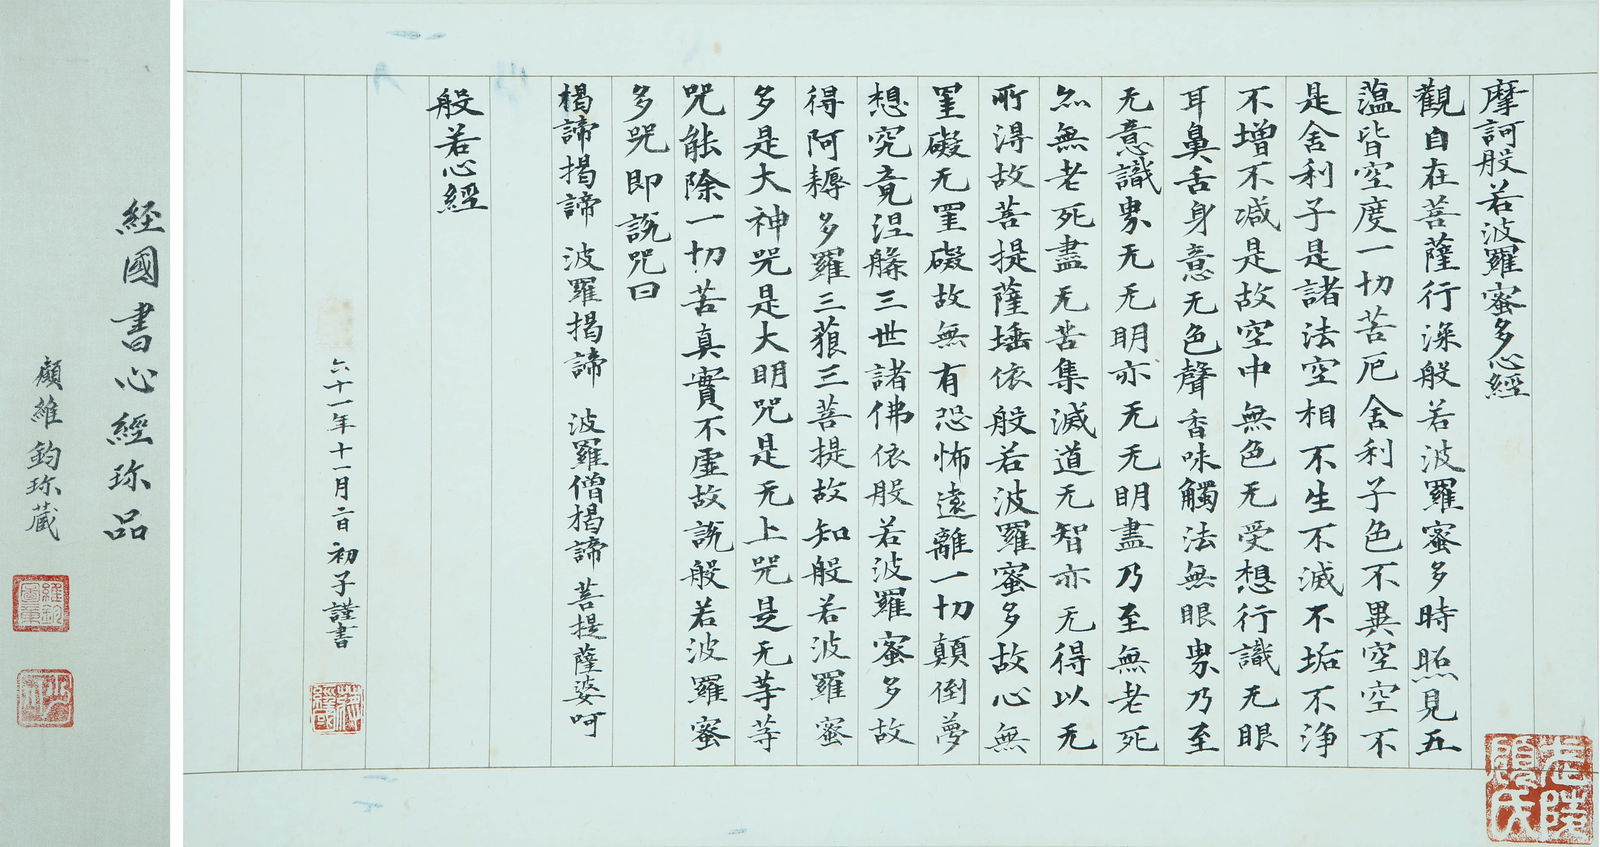 摩訶般若波羅蜜多心經
觀自在菩薩行深般若波羅蜜多時照見五
薀皆空度一切苦厄舍利子色不異空空不
是舍利子是諸法空相不生不滅不垢不浄
不增不减是故空中無色无受想行識无眼
耳鼻舌身意无色聲香味觸法無眼界乃至
无意識界无无明亦无无明盡乃至無老死
亦無老死盡无苦集滅道无智亦无得以无
所得故菩提薩埵依般若波羅蜜多故心無
罣礙无罣礙故無有恐怖遠離一切顛倒夢
想究竟涅槃三世諸佛依般若波羅蜜多故
得阿耨多羅三藐三菩提故知般若波羅蜜
多是大神咒是大明咒是无上咒是无等等
咒能除一切苦真實不虛故說般若波羅蜜
多咒即說咒曰
揭諦揭諦 波羅揭諦 波羅僧揭諦 菩提薩婆呵
般若心經
六十一年十一月二日初子謹書
蔣經國
經國書心經珍品
顧維鈞珍藏
少川